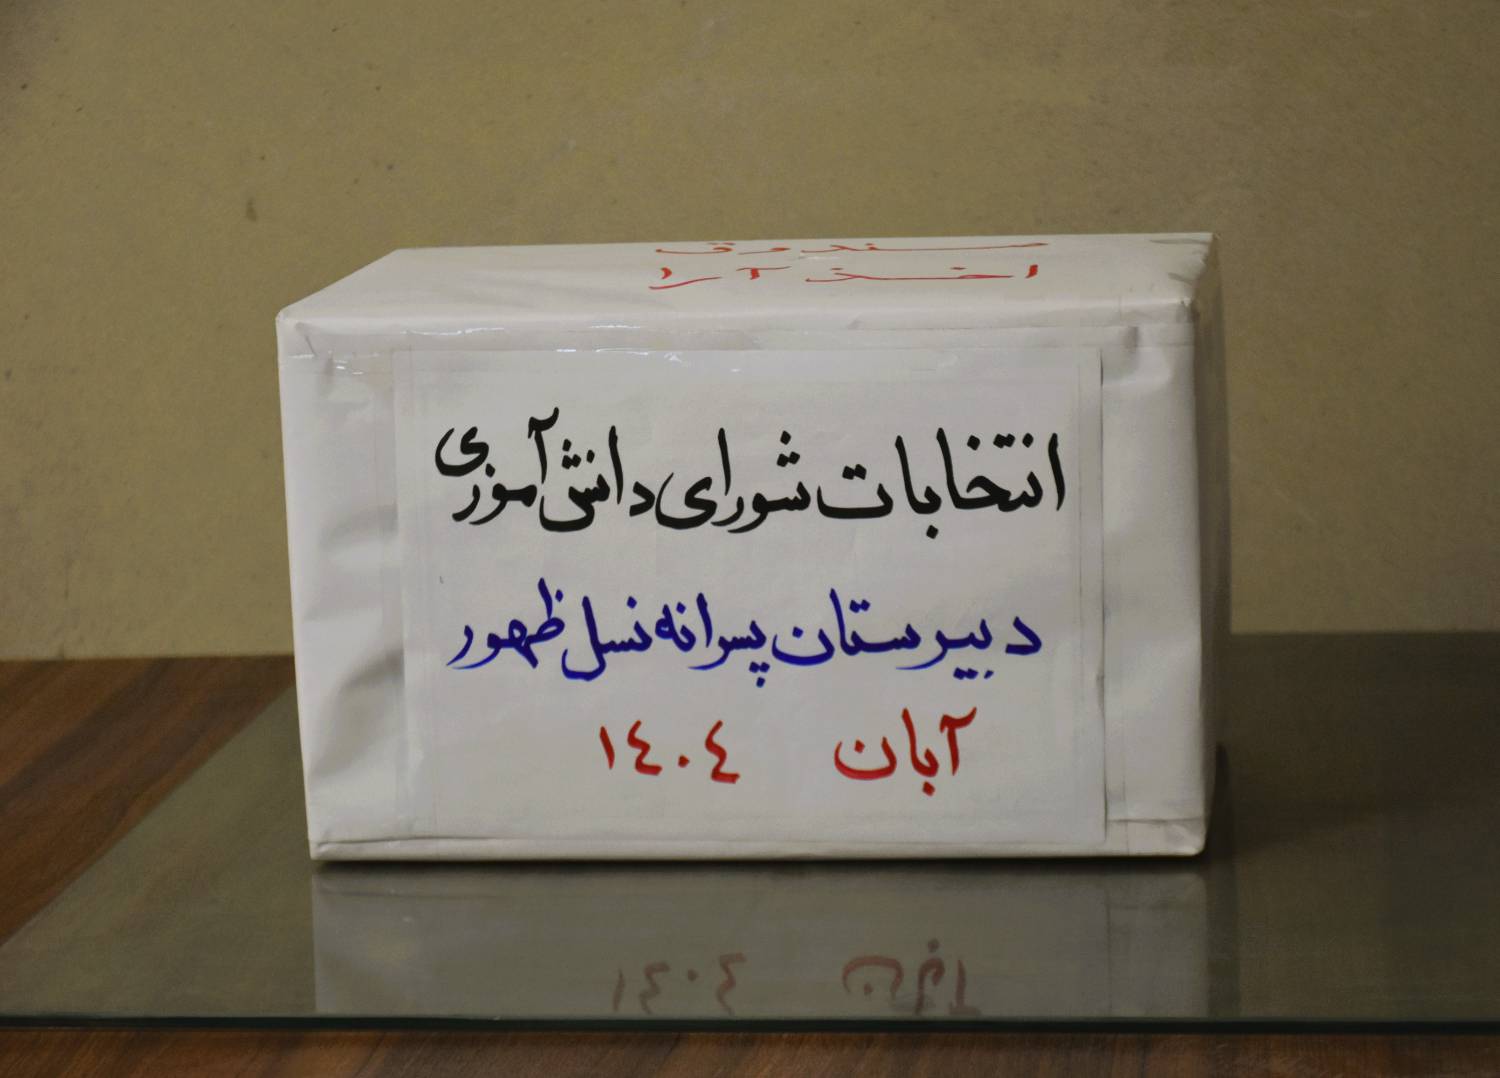 صندوق
اخذ آرا
انتخابات شورای دانش‌آموزی
دبیرستان پسرانه نسل ظهور
آبان ۱٤۰٤